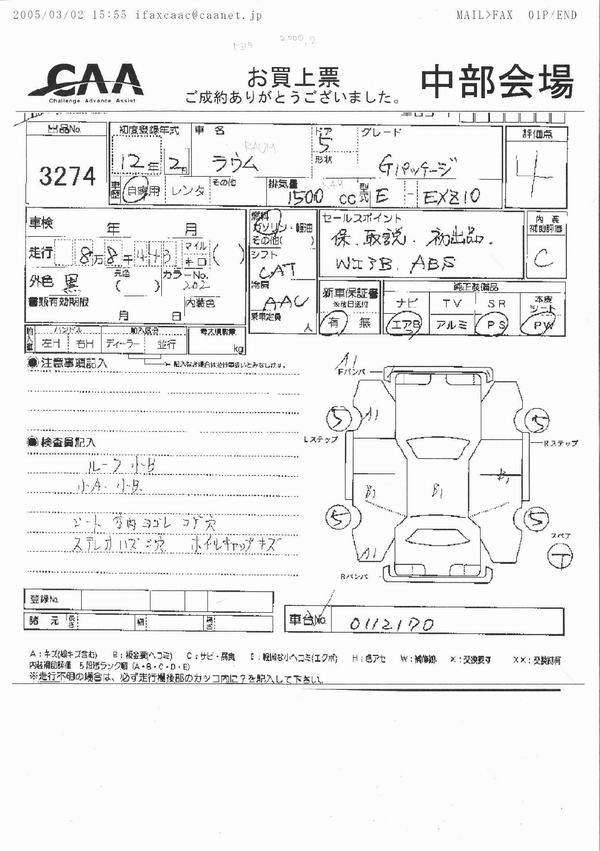 2005/03/02 15:55 ifaxcaac@caanet.jp MAIL>FAX 01P/END
CAA
Challenge Advance Assist
お買上票
ご成約ありがとうございました。
中部会場
出品No.
3274
初度登録年式
12年2
車名
ラウム
RAUM
ドア
5
形状
グレード
Gパッケージ
評価点
4
車歴
自家用 レンタ その他
排気量
1500 cc
型式
E - EXZ10
車検 年 月
走行 8万8千443 マイル キロ ( )
外色 黒 元色 ( ) カラーNo. 202
書類有効期限 月 日
内装色
燃料
ガソリン・軽油
その他( )
シフト
CAT
冷房
AAC
乗車定員 人
セールスポイント
保.取説.初出品.
WエアB ABS
内装
補助評価
C
新車保証書
※後日送付
有 無
純正装備品
ナビ TV SR 本皮シート
エアB アルミ PS PW
輸入車
ハンドル
左H 右H
輸入区分
ディーラー 並行
最大積載量
kg
●注意事項記入
●検査員記入
ルーフ 小B
小A. 小B
シート 室内ヨゴレ コゲ穴
ステレオハズシ穴 ホイルキャップキズ
A1
Fバンパ
5 A1 5
Lステップ Rステップ
B1 B1 B1
5 5
A1
Rバンパ
スペア
T
登録No.
諸元 長さ 幅 高さ
車台No. 0112170
A:キズ(線キズ含む) B:板金要(ヘコミ) C:サビ・腐食 E:軽微な小ヘコミ(エクボ) H:色アセ W:補修跡 X:交換要す XX:交換済有
内装補助評価 5段階ランク制 (A・B・C・D・E)
※走行不明の場合は、必ず走行欄後部のカッコ内に?を記入して下さい。